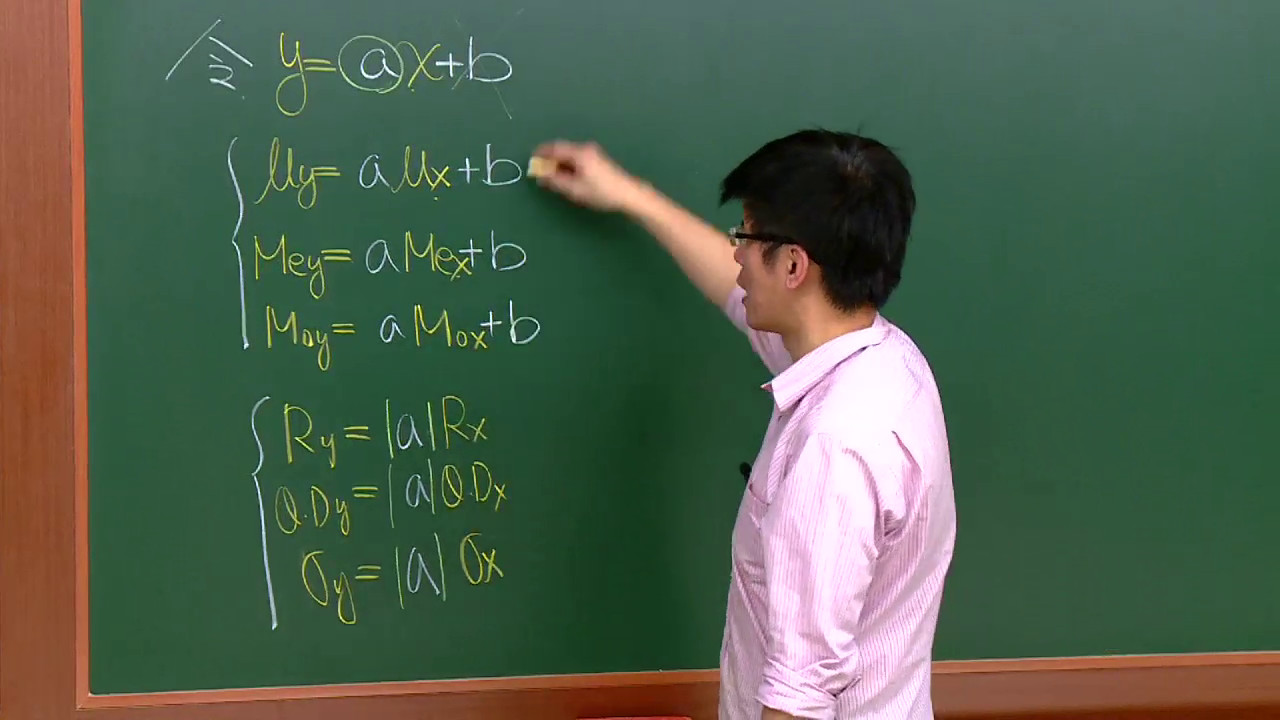 令 y = ax + b
μy = aμx + b
Mey = aMex + b
Moy = aMox + b
Ry = |a|Rx
Q.Dy = |a|Q.Dx
σy = |a|σx